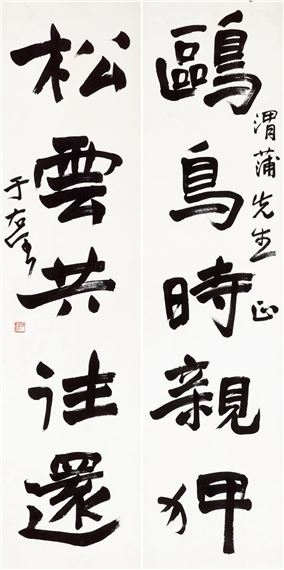 渭蒲先生正
鷗鳥時親狎
松雲共往還
于右任